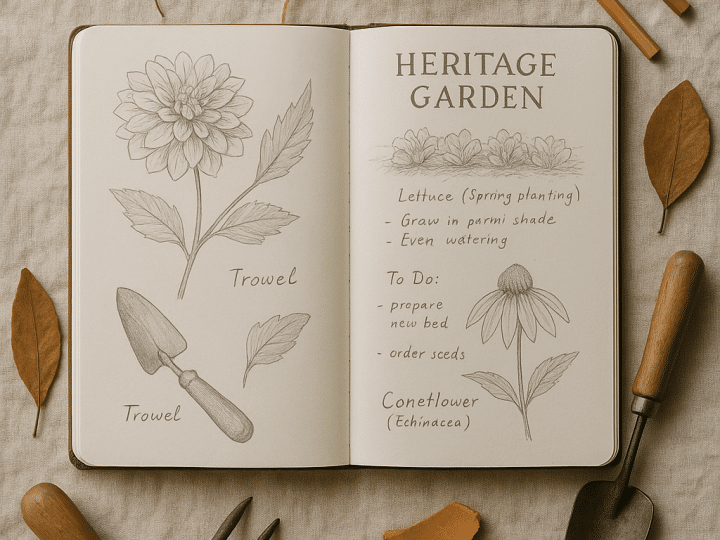 Trowel
Trowel
HERITAGE
GARDEN
Lettuce (Spring planting)
- Graw in parmi shade
- Even watering
To Do:
- prepare
new bed
- order seeds
Conetlower
(Echinacea)